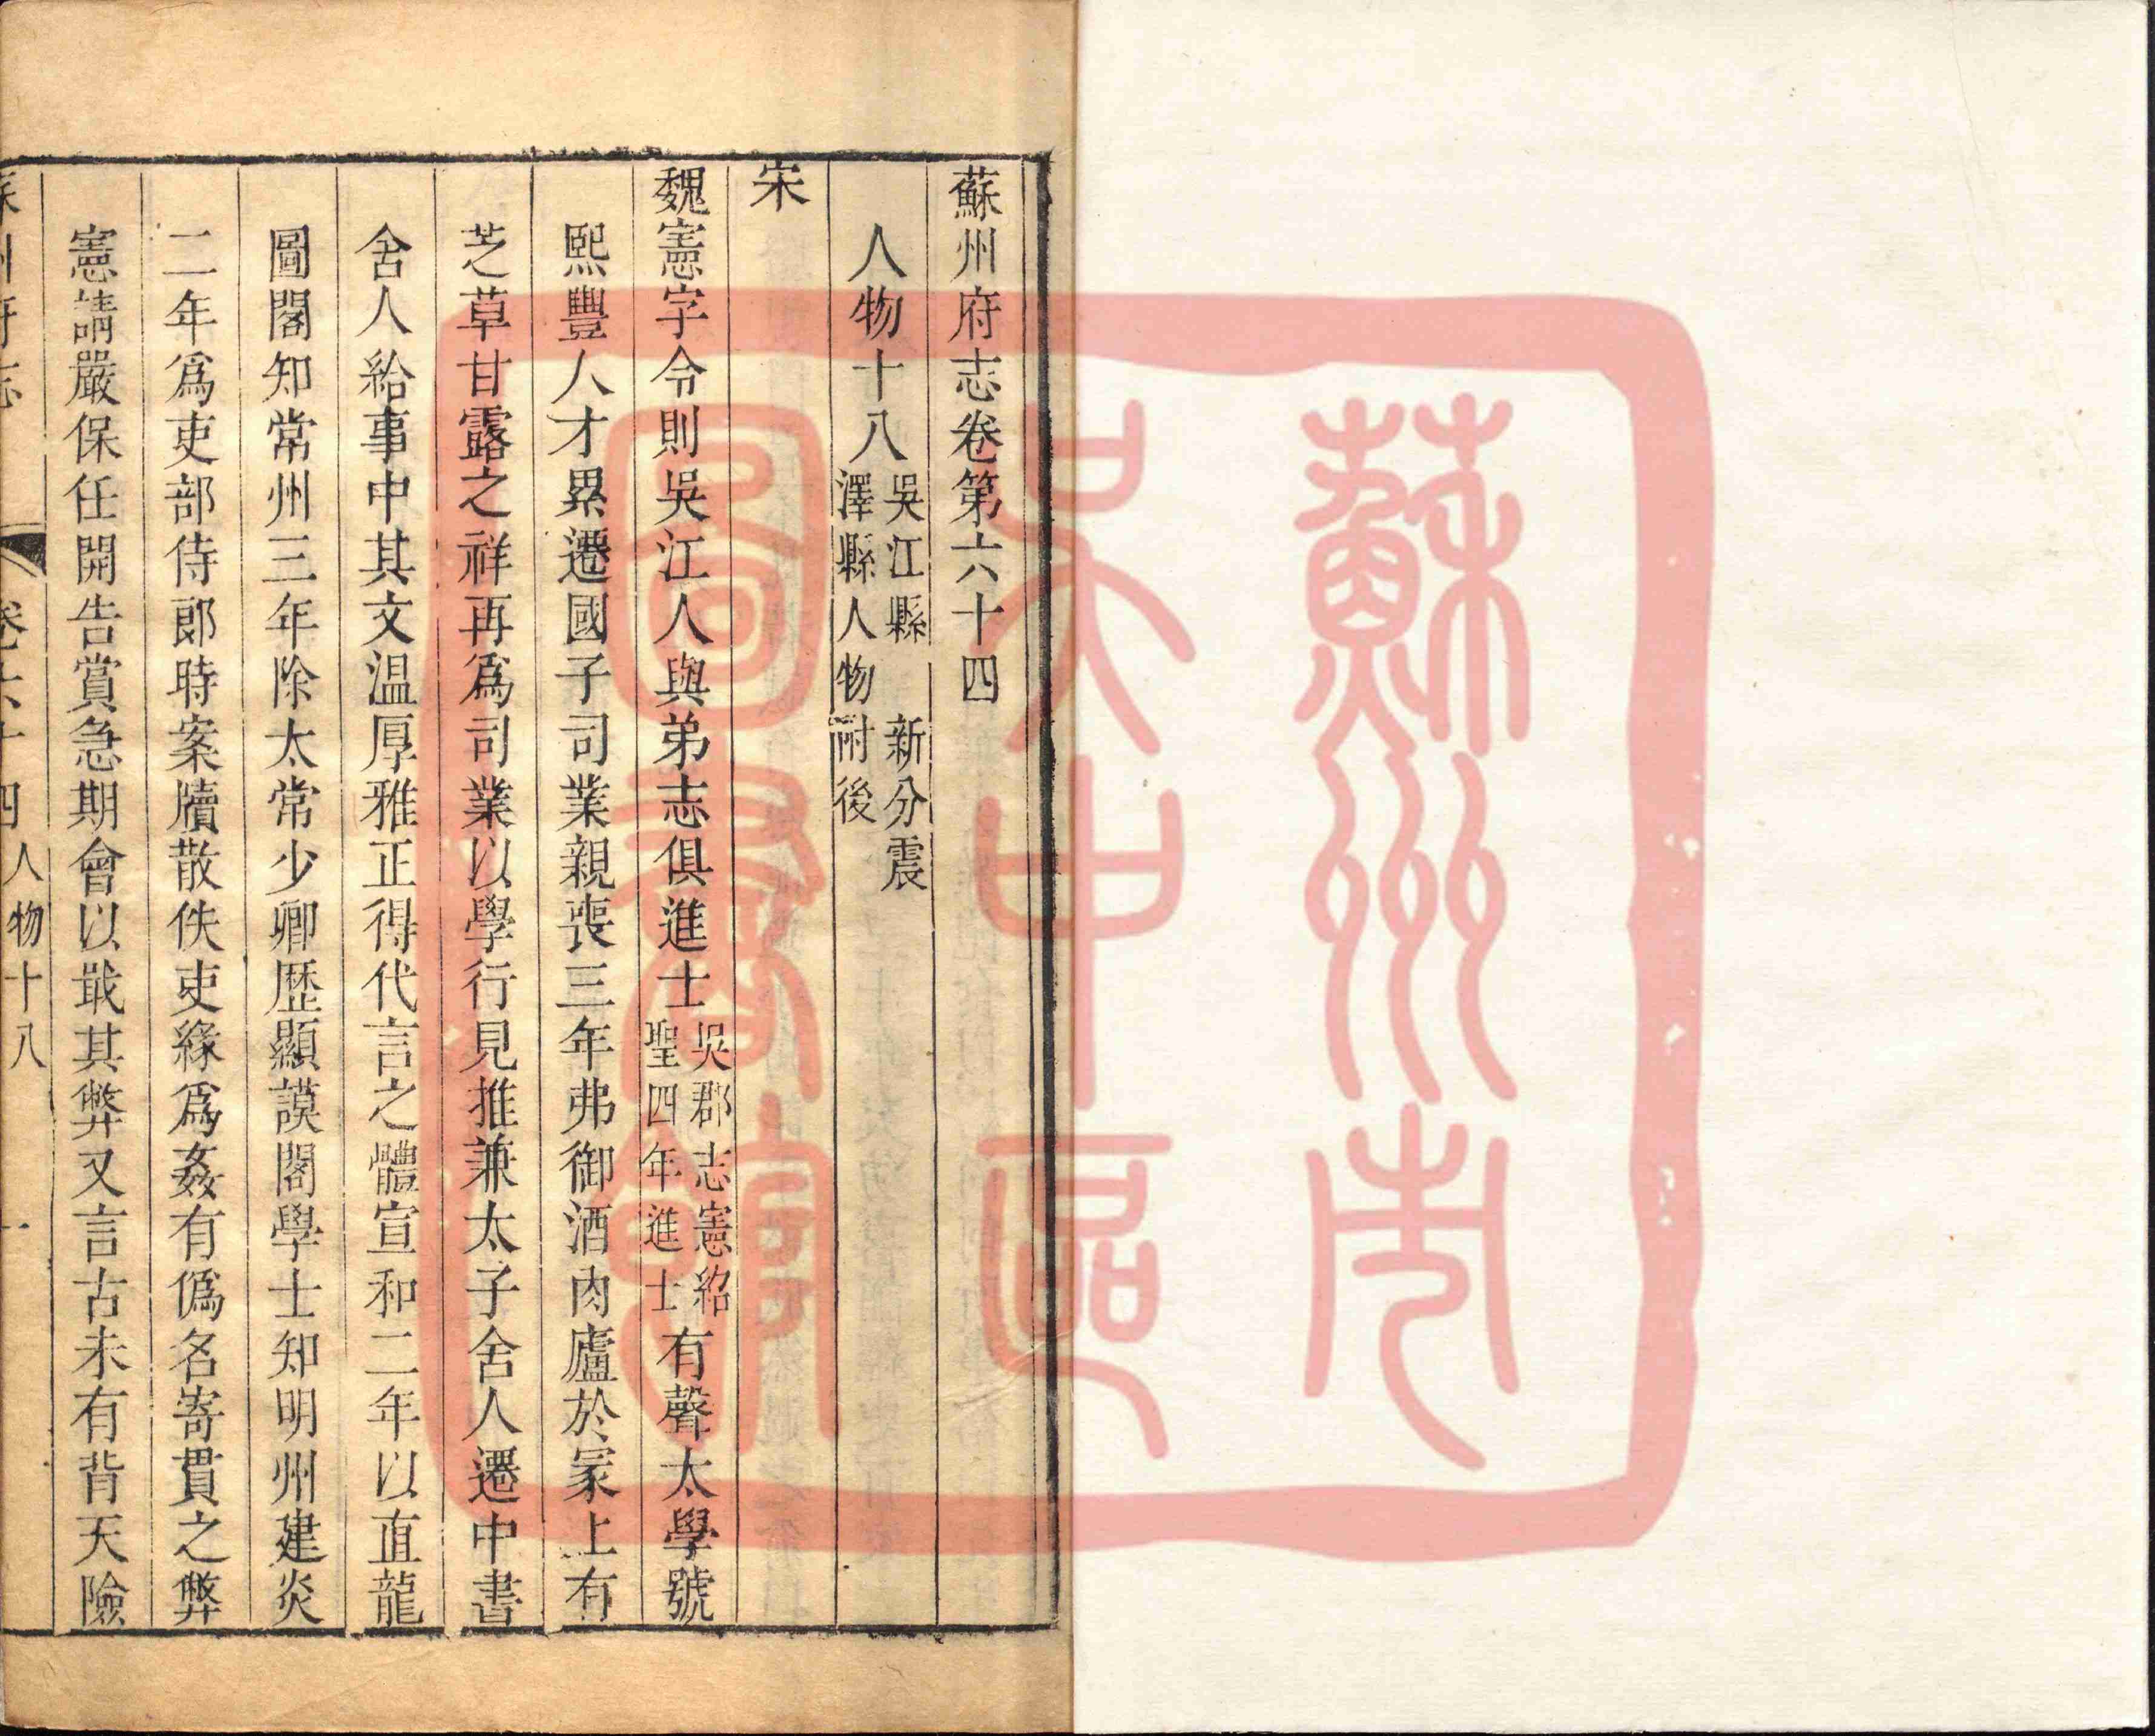 蘇州府志卷第六十四
人物十八 吳江縣 新分震澤縣人物附後
宋
魏憲字令則吳江人與弟志俱進士 吳郡志憲紹聖四年進士 有聲太學號
熙豐人才累遷國子司業親喪三年弗御酒肉廬於冢上有
芝草甘露之祥再爲司業以學行見推兼太子舍人遷中書
舍人給事中其文温厚雅正得代言之體宣和二年以直龍
圖閣知常州三年除太常少卿歷顯謨閣學士知明州建炎
二年爲吏部侍郎時案牘散佚吏緣爲姦有僞名寄貫之弊
憲請嚴保任開告賞急期會以戢其弊又言古未有背天險
蘇州府志 卷六十四 人物十八 一
蘇州市
吴中區
圖書館